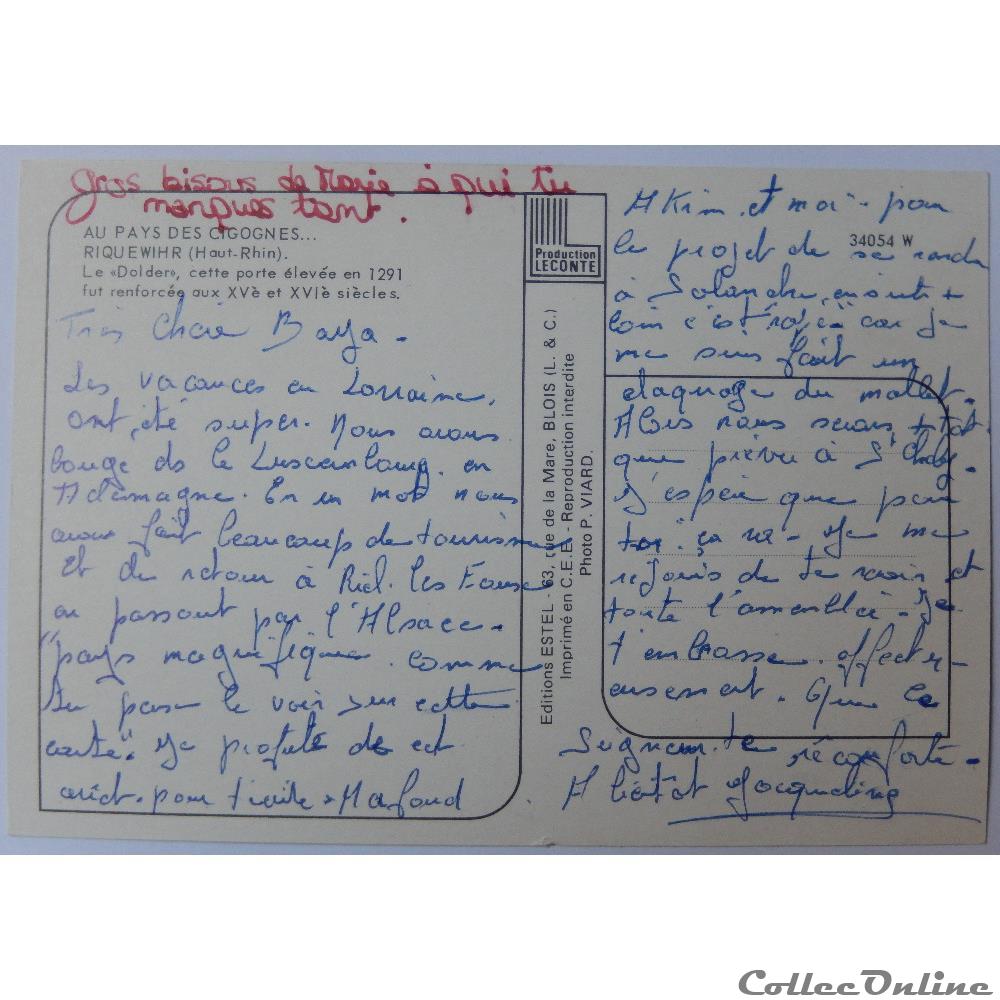 Gros bisous de Marie à qui tu
manques tant.
AU PAYS DES CIGOGNES...
RIQUEWIHR (Haut-Rhin).
Le «Dolder», cette porte élevée en 1291
fut renforcée aux XVè et XVIè siècles.
Très Chère Baya -
Les vacances en Lorraine,
ont été super. Nous avons
bougé ds le en
Allemagne. En un mot nous
avons fait beaucoup de tourisme
Et de retour à
en passant par l'Alsace.
"pays magnifique comme
Tu peux le voir sur cette
carte". Je profite de cet
arrêt pour
Production
LECONTE
Editions ESTEL - 63, rue de la Mare, BLOIS (L. & C.)
Imprimé en C.E.E - Reproduction interdite
Photo P. VIARD.
34054 W
AKim et moi - pour
le projet de se rendre
à
loin c'est car je
me suis fait un
claquage du mollet.
Alors nous serons + tôt
que prévu à
J'espère que pour
toi ça va - Je me
réjouis de te revoir et
toute l'assemblée - Je
t'embrasse affectu-
eusement. Que le
Seigneur te réconforte -
A bientôt Jacqueline
CollecOnline